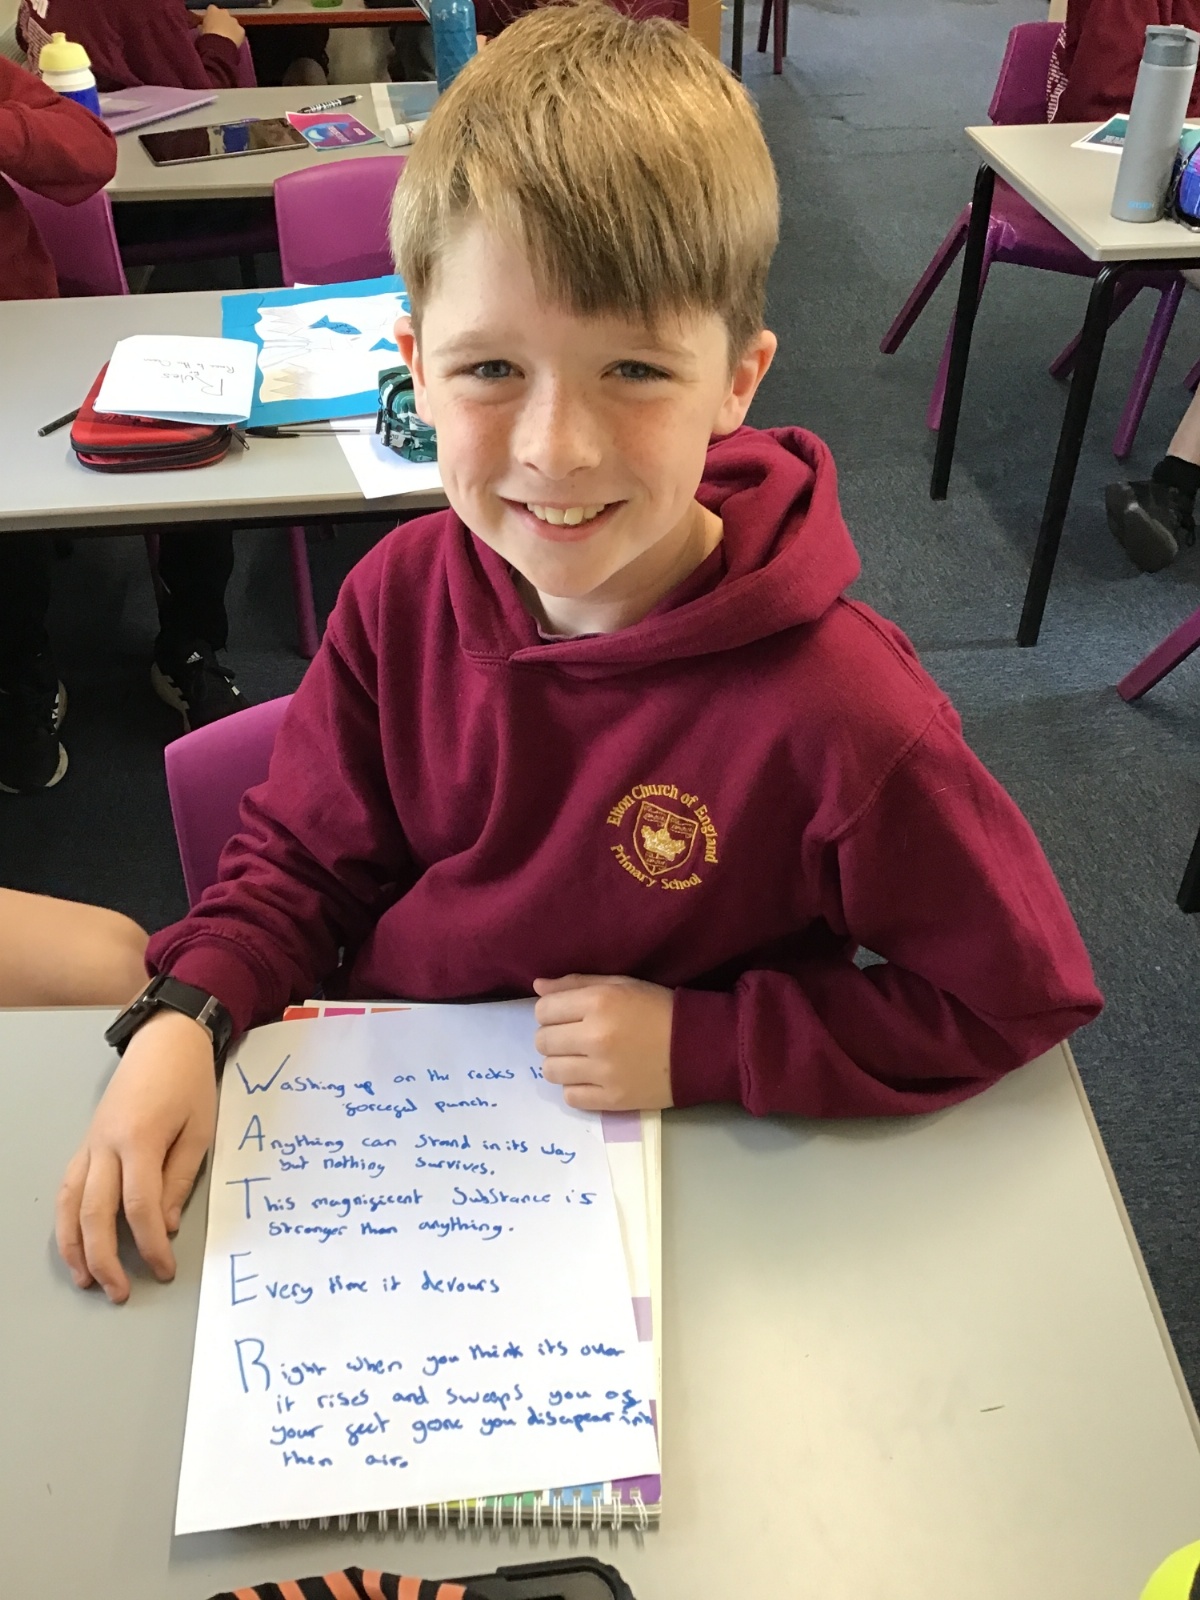 Rules
Elton Church of England
Primary School
Washing up on the rocks
forceful punch.
Anything can stand in its way
but nothing survives.
This magnificent Substance is
stronger than anything.
Every time it devours
Right when you think its over
it rises and sweeps you of
your feet gone you disapear into
then air.